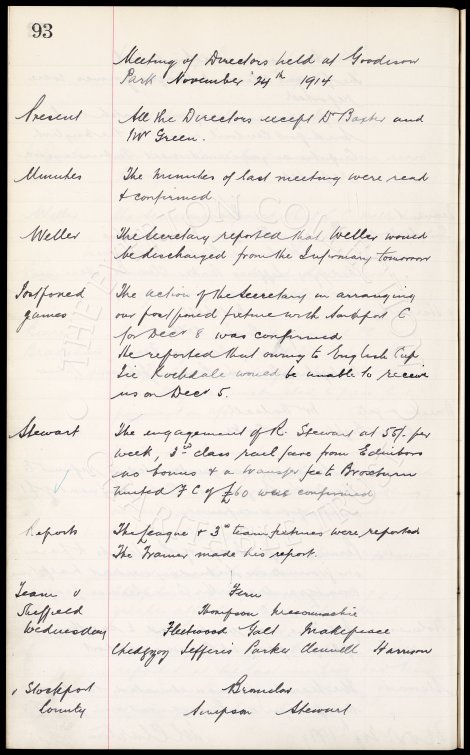 93
Meeting of Directors held at Goodison
Park November 24th 1914
Present All the Directors except Dr Baxter and
Mr Green.
Minutes The Minutes of last meeting were read
& confirmed
Weller The Secretary reported that Weller would
be discharged from the Infirmary tomorrow
Postponed The action of the Secretary in arranging
games our postponed fixture with Stockport C
for Decr 8 was confirmed
He reported that owing to English Cup
Tie Rochdale would be unable to receive
us on Decr 5.
Stewart The engagement of R. Stewart at 50/- per
week, 3rd class rail fare from Edinboro
as bonus & a transfer fee to Broxburn
United F C of £60 was confirmed
Reports The League & 3rd team fixtures were reported
The Trainer made his report.
Team v Fern
Sheffield Thompson Maconnachie
Wednesday Fleetwood Galt Makepeace
Chedgzoy Jefferis Parker Clennell Harrison
v Stockport Bromilow
County Simpson Stewart